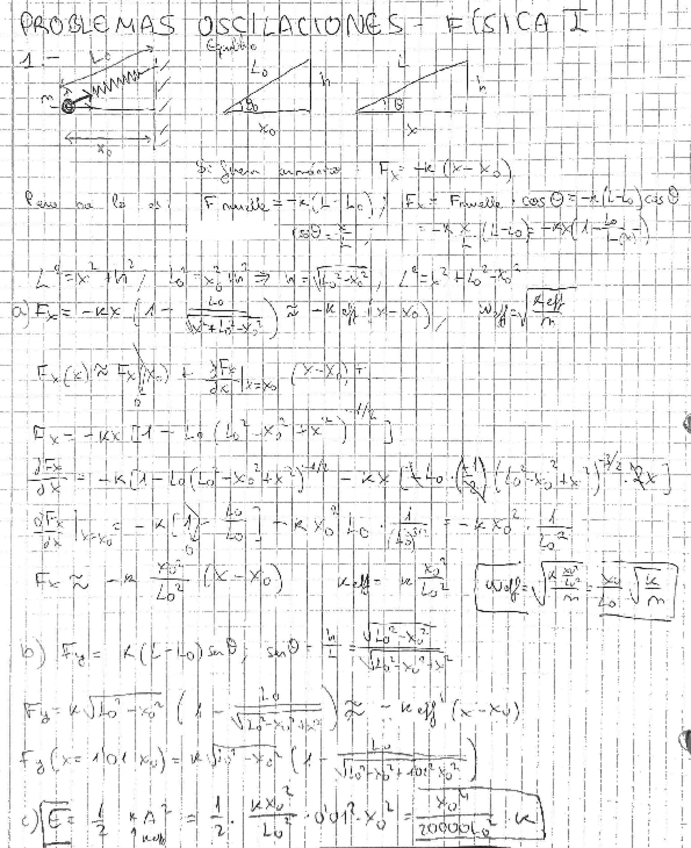 PROBLEMAS OSCILACIONES - FÍSICA I
1.-
L₀ Equilibrio
m L₀ h L h
θ₀ θ
x₀ x₀ x
Si fuera armónico: Fx = -k(x-x₀)
Pero no lo es: F muelle = -k(L-L₀); Fx = Fmuelle · cos θ = -k(L-L₀) cos θ
cos θ = x/L; = -k x/L (L-L₀) = -kx(1 - L₀/L(x))
L² = x² + h²; L₀² = x₀² + h² ⇒ h = √(L₀²-x₀²), L² = x² + L₀² - x₀²
a) Fx = -kx (1 - L₀/√(x²+L₀²-x₀²)) ≈ -k eff (x-x₀), ω eff = √(k eff/m)
Fx(x) ≈ Fx(x₀) + dFx/dx|x=x₀ (x-x₀) +
0
Fx = -kx [1 - L₀ (L₀² - x₀² + x²)^-1/2]
dFx/dx = -k[1 - L₀(L₀²-x₀²+x²)^-1/2] - kx [-L₀ · (-1/2) (L₀²-x₀²+x²)^-3/2 · 2x]
dFx/dx|x=x₀ = -k[1 - L₀/L₀] - k x₀² L₀ · 1/(L₀)³ = -k x₀² · 1/L₀²
0
Fx ≈ -k x₀²/L₀² (x-x₀) k eff = k x₀²/L₀² ω eff = √(k x₀²/L₀² / m) = x₀/L₀ √(k/m)
b) Fy = k(L-L₀) sen θ; sen θ = h/L = √(L₀²-x₀²)/√(L₀²-x₀²+x²)
Fy = k √(L₀²-x₀²) (1 - L₀/√(L₀²-x₀²+x²)) ≈ -k eff (x-x₀)
Fy (x = 1'01 x₀) = k √(L₀²-x₀²) (1 - L₀/√(L₀²-x₀²+1'01² x₀²))
c) E = 1/2 k A² = 1/2 · k x₀²/L₀² · 0'01² · x₀² = x₀⁴/20000L₀² · k
↑ k eff